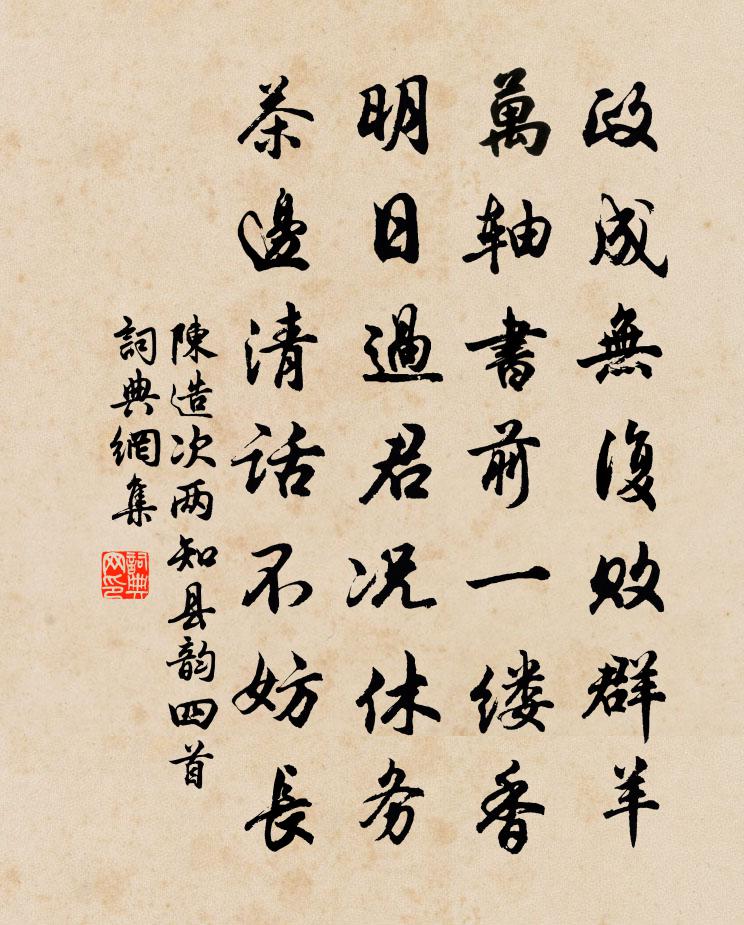 政成無復敗群羊
萬轴書前一缕香
明日過君况休务
茶邊清話不妨長
陳造次两知县韵四首
詞典網集
詞典网印